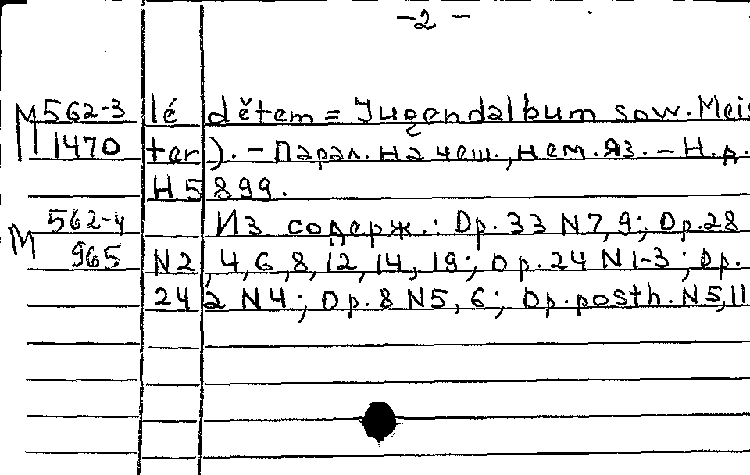 -2-
М 562-3 lé dětem = Jugendalbum sow. Meis
1470 ter). - Парал. на чеш., нем. яз. - Н.д.
H5899.
М 562-4 Из содерж.: Op.33 N7,9; Op.28
965 N2,4,6,8,12,14,18; Op.24 N1-3; Op.
24a N4; Op.8 N5,6; Op.posth. N5,11